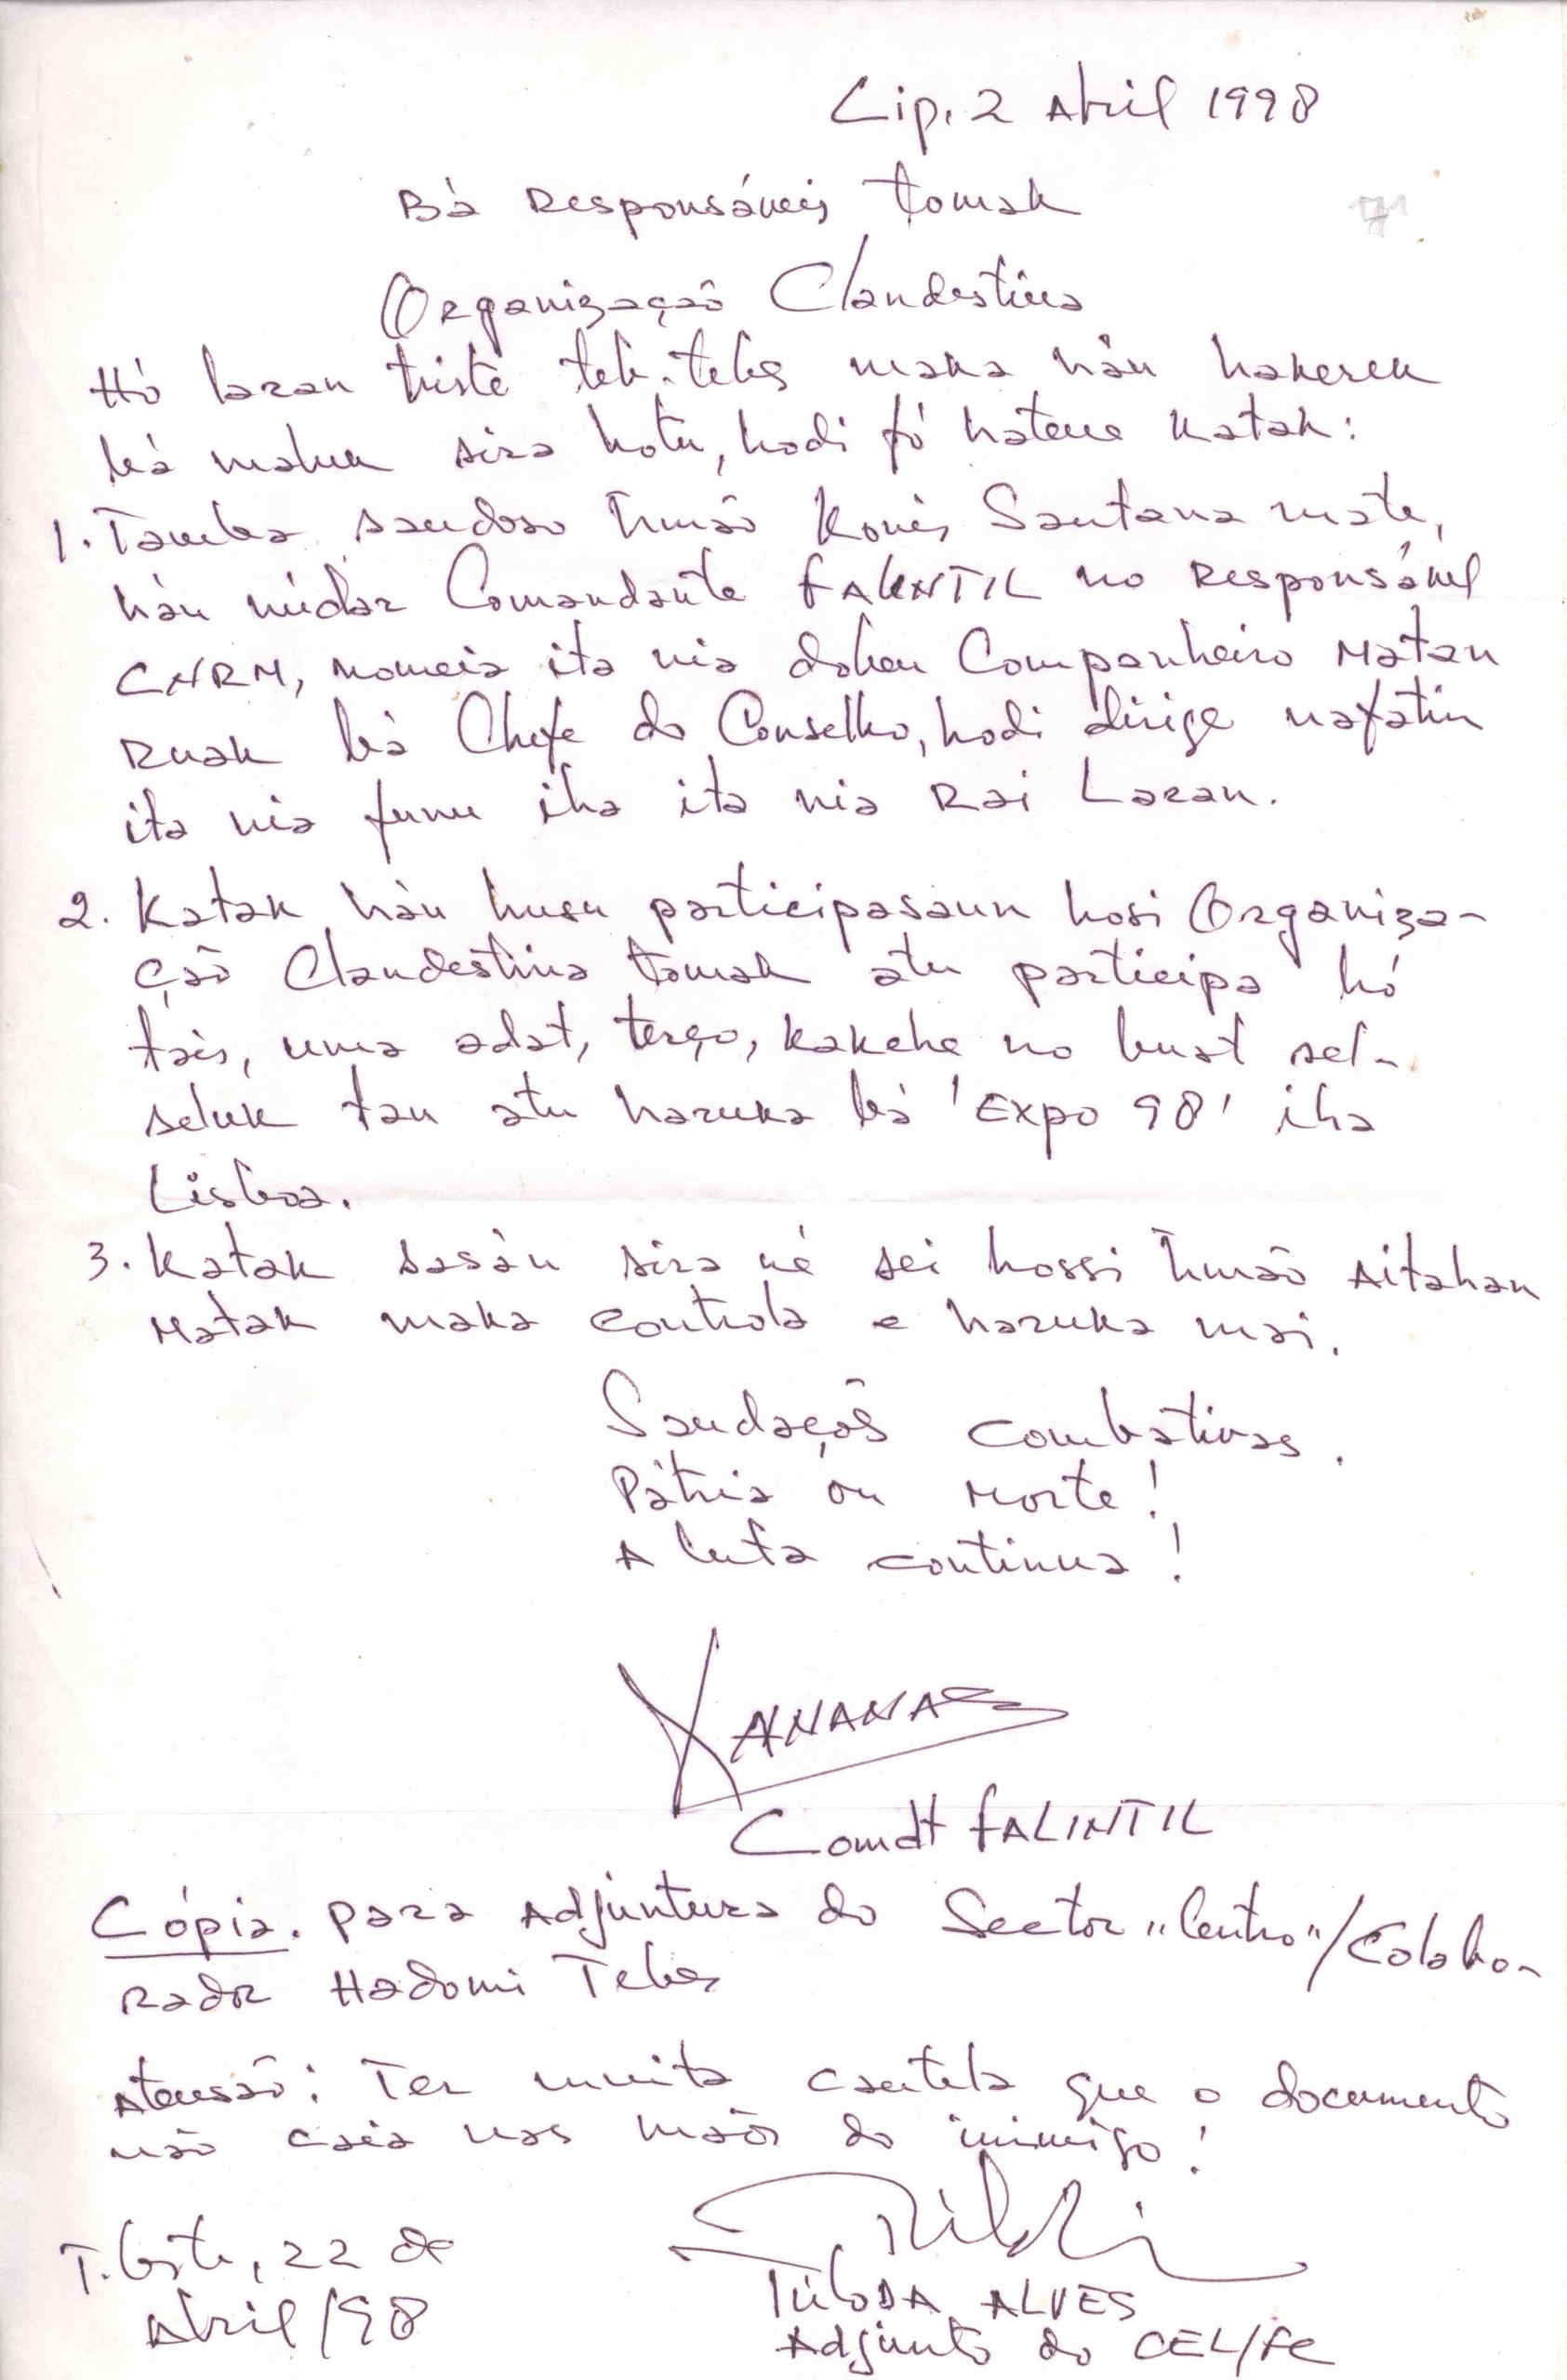 Cip, 2 Abril 1998
Bá Responsáveis tomak
Organização Clandestina
Hó laran triste teb-tebes maka háu hakerek
bá maluk sira hotu, hodi fó hatene katak:
1. Tamba saudoso Irmão Konis Santana mate,
háu núdar Comandante FALINTIL no Responsável
CNRM, nomeia ita nia doben Companheiro Matan
Ruak bá Chefe do Conselho, hodi dirige nafatin
ita nia funu iha ita nia Rai Laran.
2. Katak háu husu participasaun hosi Organiza-
ção Clandestina tomak atu participa hó
tais, uma adat, terço, kakehe no buat sel-
seluk tan atu haruka bá 'Expo 98' iha
Lisboa.
3. Katak sasán sira né sei hossi Irmão Aitahan
Matak maka controla e haruka mai.
Saudações combativas.
Pátria ou Morte!
A luta continua!
XANANA
Comdt FALINTIL
Cópia. Para Adjuntura do Sector "Centro"/Colabo-
rador Hadomi Tebes
Atensão: Ter muita cautela que o documento
não caia nas mãos do inimigo!
T. Leste, 22 de
Abril/98
ALVES
Adjunto do CEL/FC